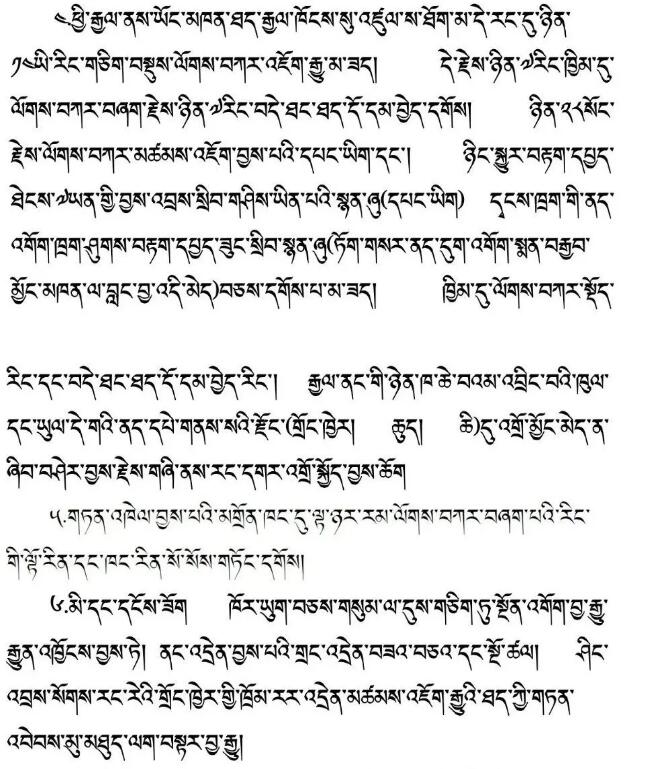 ༤.ཕྱི་རྒྱལ་ནས་ཡོང་མཁན་ཐད་རྒྱལ་ཁོངས་སུ་འཛུལ་ས་ཐོག་མ་དེ་རང་དུ་ཉིན་
༡༤ཡི་རིང་གཅིག་བསྡུས་ལོགས་བཀར་འཇོག་རྒྱུ་མ་ཟད། དེ་རྗེས་ཉིན་༧རིང་ཁྱིམ་དུ་
ལོགས་བཀར་བཞག་རྗེས་ཉིན་༧རིང་བདེ་ཐང་ཐད་དོ་དམ་བྱེད་དགོས། ཉིན་༢༨སོང་
རྗེས་ལོགས་བཀར་མཚམས་འཇོག་བྱས་པའི་དཔང་ཡིག་དང་། ཉིང་སྐྱུར་བརྟག་དཔྱད་
ཐེངས་༧ཡན་གྱི་བྱས་འབྲས་སྲིབ་གཤིས་ཡིན་པའི་སྙན་ཞུ(དཔང་ཡིག) དྭངས་ཁྲག་གི་ནད་
འགོག་ཁྲག་ཤུགས་བརྟག་དཔྱད་ཟུང་སྲིབ་སྙན་ཞུ(ཏོག་གསར་ནད་དུག་འགོག་སྨན་བརྒྱབ་
མྱོང་མཁན་ལ་བླང་བྱ་འདི་མེད)བཅས་དགོས་པ་མ་ཟད། ཁྱིམ་དུ་ལོགས་བཀར་སྡོད་
རིང་དང་བདེ་ཐང་ཐད་དོ་དམ་བྱེད་རིང་། རྒྱལ་ནང་གི་ཉེན་ཁ་ཆེ་བའམ་འབྲིང་བའི་ཁུལ་
དང་ཡུལ་དེ་གའི་ནད་དཔེ་གནས་སའི་རྫོང་(གྲོང་ཁྱེར། ཆུད། ཆི)དུ་འགྲོ་མྱོང་མེད་ན་
ཞིབ་བཤེར་བྱས་རྗེས་གཞི་ནས་རང་དགར་འགྲོ་སྐྱོད་བྱས་ཆོག
༥.གཏན་འཁེལ་བྱས་པའི་མགྲོན་ཁང་དུ་ལྟ་ཉར་རམ་ལོགས་བཀར་བཞག་པའི་རིང་
གི་ལྟོ་རིན་དང་ཁང་རིན་སོ་སོས་གཏོང་དགོས།
༦.མི་དང་དངོས་ཟོག ཁོར་ཡུག་བཅས་གསུམ་ལ་དུས་གཅིག་ཏུ་སྔོན་འགོག་བྱ་རྒྱུ་
རྒྱུན་འཁྱོངས་བྱས་ཏེ། ནང་འདྲེན་བྱས་པའི་གྲང་འདྲེན་བཟའ་བཅའ་དང་སྔོ་ཚལ། ཤིང་
འབྲས་སོགས་རང་རེའི་གྲོང་ཁྱེར་གྱི་ཁྲོམ་རར་འདྲེན་མཚམས་འཇོག་རྒྱུའི་ཐད་ཀྱི་གཏན་
འབེབས་མུ་མཐུད་ལག་བསྟར་བྱ་རྒྱུ།